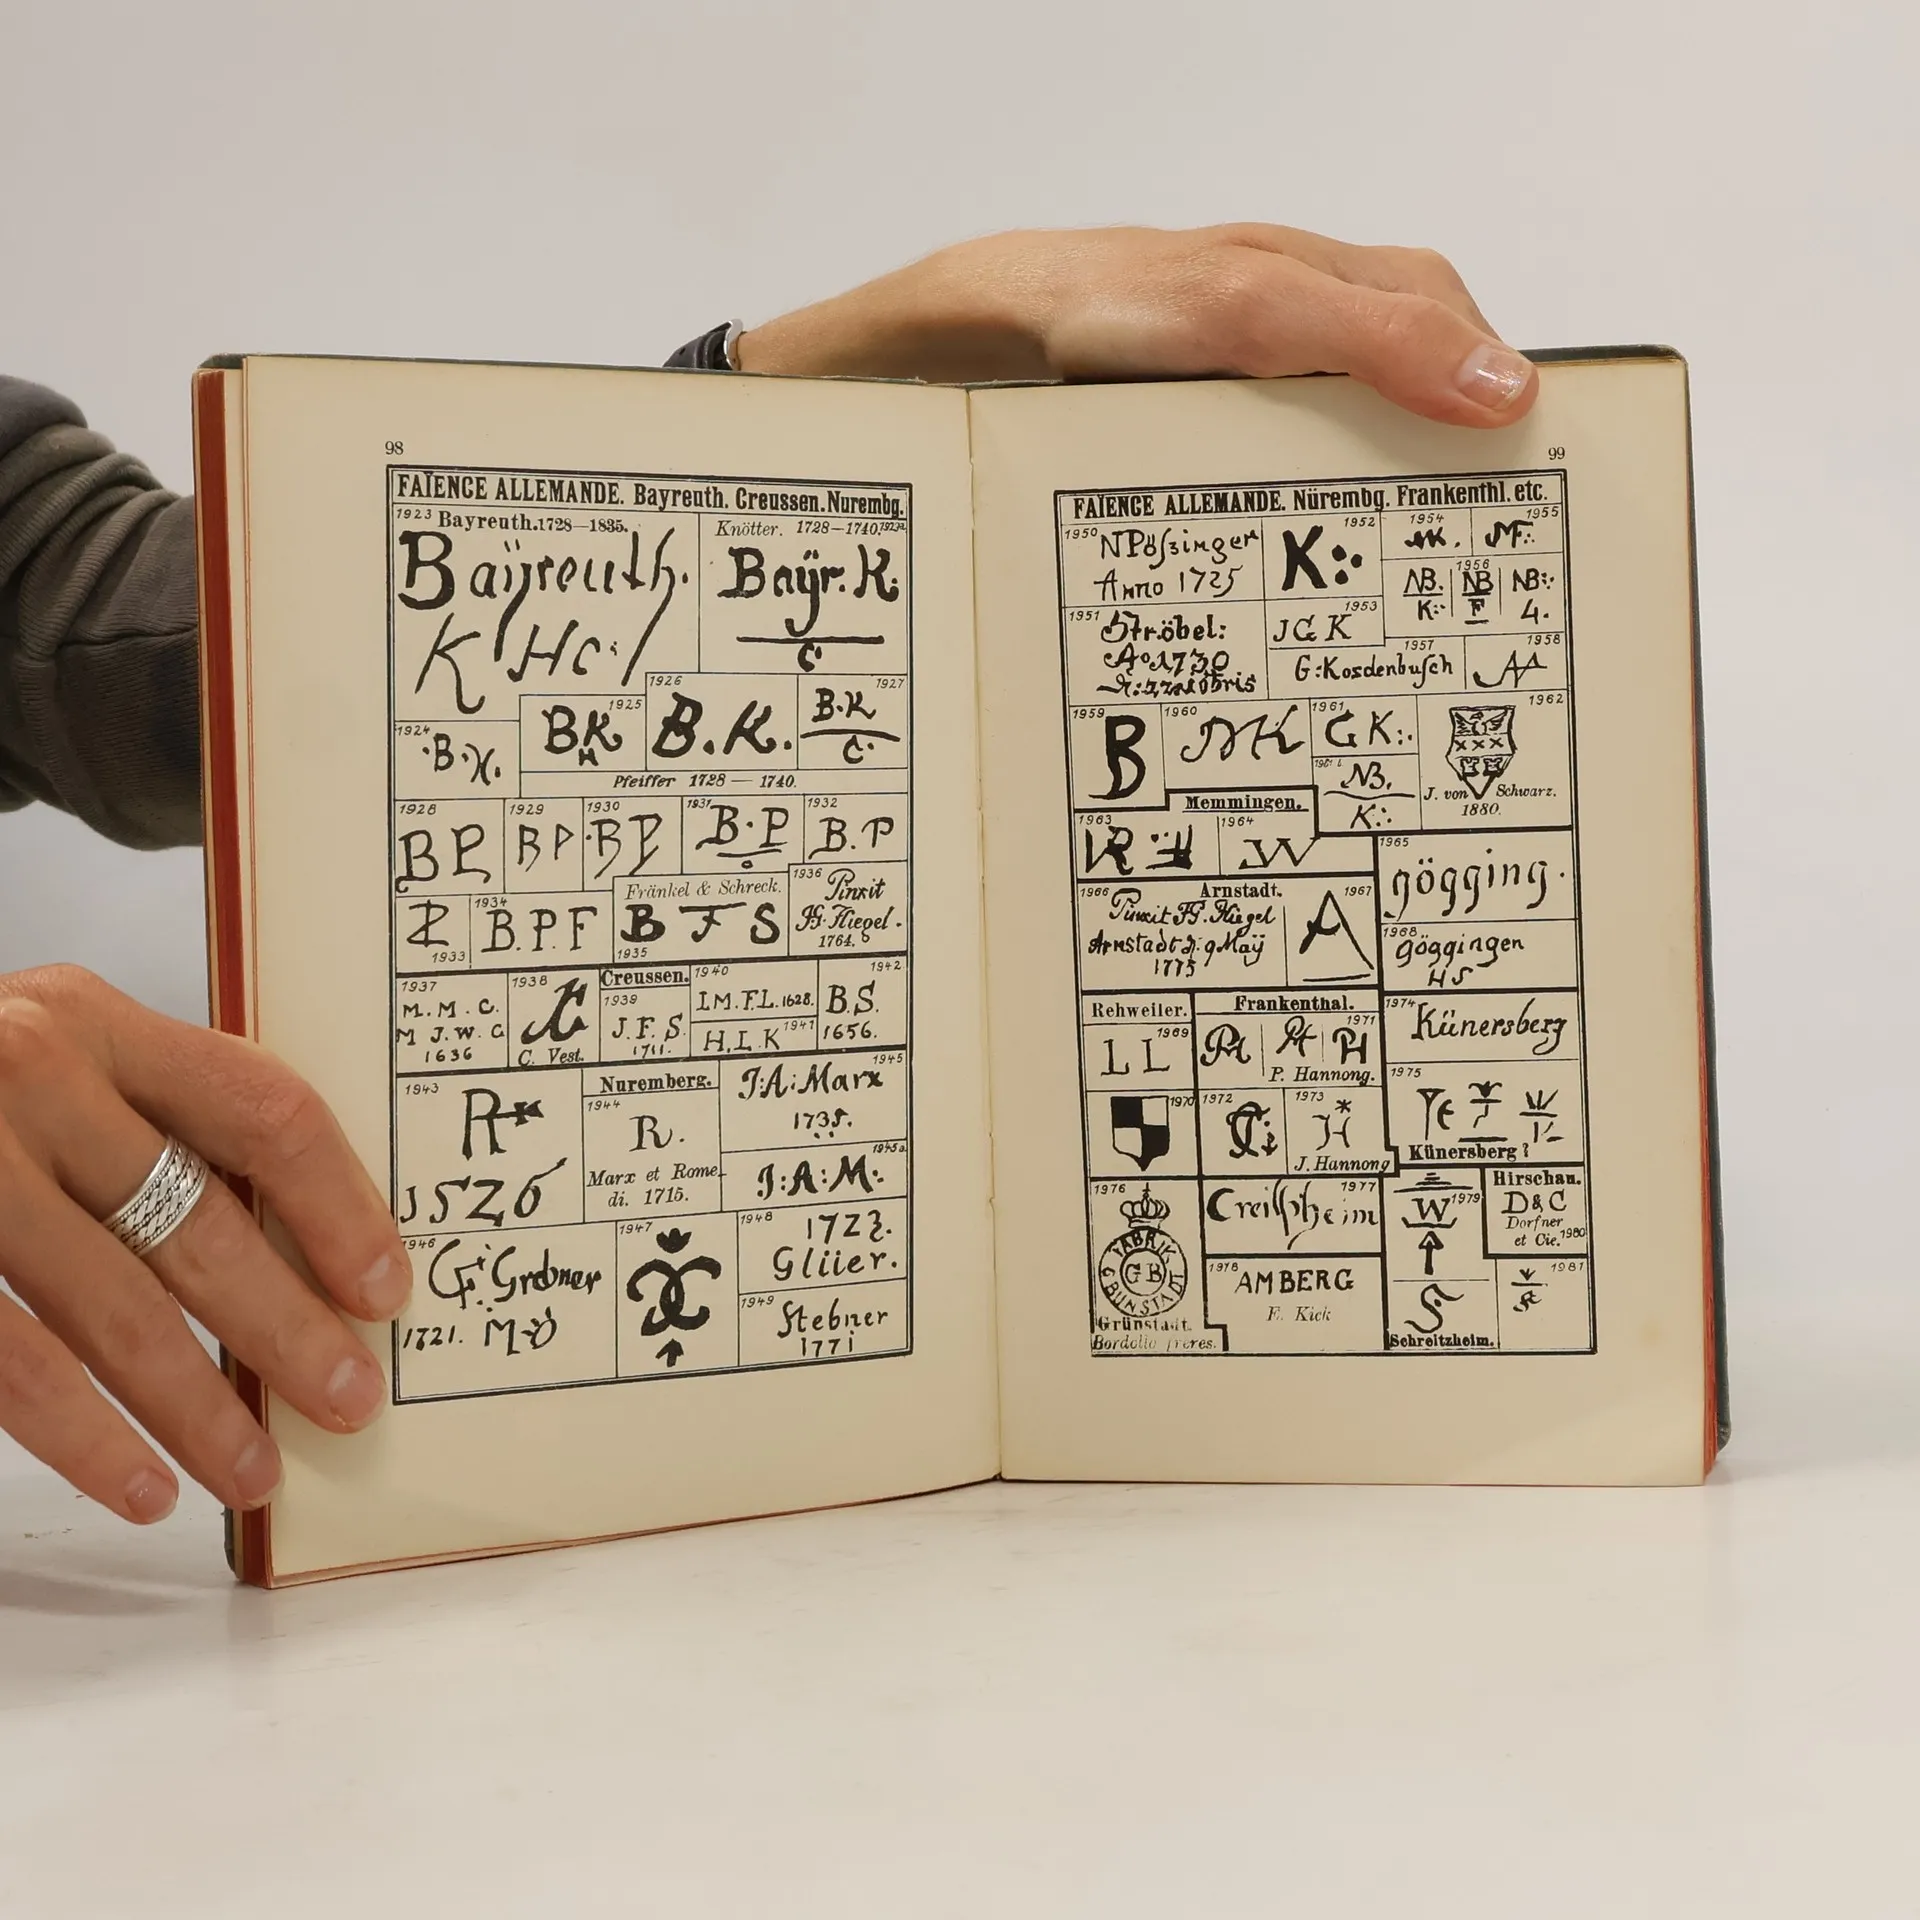 98
FAÏENCE ALLEMANDE. Bayreuth. Creussen. Nurembg.
1923 Bayreuth. 1728—1835.
Baÿreuth.
K Hc:
Knötter. 1728—1740. 1923a
Baÿr. K:
C
1924
B.K.
1925
BK
H
1926
B.K.
1927
B.K
C.
Pfeiffer 1728 — 1740.
1928
BP
1929
BP
1930
BP
1931
B.P
1932
B.P
1933
1934
B.P.F
Fränkel & Schreck.
B F S
1935
1936
Pinxit
1764.
1937
M.M.C.
M J.W.C
1636
1938
C. Vest.
Creussen.
1939
J.F.S.
1711.
1940
I.M.F.L. 1628.
1941
H.L.K
1942
B.S.
1656.
1943
R
1526
Nuremberg.
1944
R.
Marx et Rome-
di. 1715.
1945
J:A:Marx
1735.
1945a
J:A:M:
1946
G: Grebner
1721.
1947
1948
1723.
Glüer.
1949
Stebner
1771
99
FAÏENCE ALLEMANDE. Nürembg. Frankenthl. etc.
1950
NPößinger
Anno 1725
1951
Ströbel:
Ao 1730
1952
K:.
1953
JGK
1954
1955
1956
NB. NB NB:
K: F 4.
1957
G:Kosdenbusch
1958
1959
B
1960
1961
GK:.
NB.
K:.
1962
J. von Schwarz.
1880.
Memmingen.
1963
1964
W
1965
gögging.
1966
Arnstadt.
Arnstadt d. 9 Maÿ
1775
1967
A
1968
göggingen
HS
Rehweiler.
1969
LL
1970
Frankenthal.
1971
PH
P. Hannong.
1972
1973
H
J. Hannong
1974
Künersberg
1975
Künersberg?
1976
FABRIK
GRÜNSTADT
GB
Grünstadt.
Bordollo frères.
1977
Creilsheim
1978
AMBERG
E. Kick
1979
W
S
Schreitzheim.
Hirschau.
D&C
Dorfner
et Cie. 1980
1981